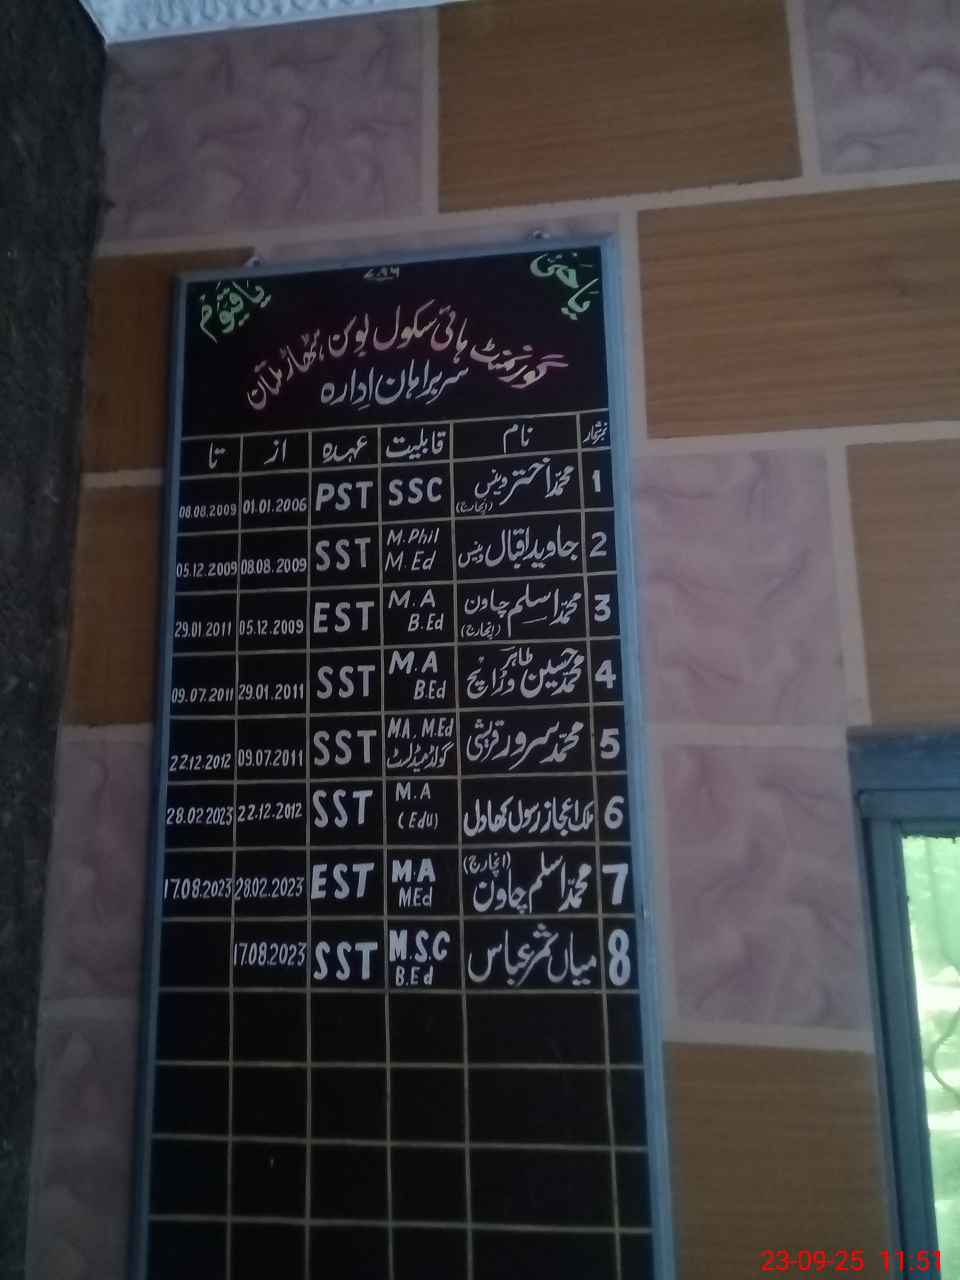 ۷۸۶
یا حیُّ
یا قیّوم
گورنمنٹ ہائی سکول بوسن ہٹھاڑ ملتان
سربراہان اِدارہ
نمبرشمار نام قابلیت عہدہ از تا
1 محمد اختر وینس (انچارج) SSC PST 01.01.2006 08.08.2009
2 جاوید اقبال وینس M.Phil M.Ed SST 08.08.2009 05.12.2009
3 محمد اسلم چاون (انچارج) M.A B.Ed EST 05.12.2009 29.01.2011
4 محمد حسین طاہر وڑائچ M.A B.Ed SST 29.01.2011 09.07.2011
5 محمد سرور قریشی M.A, M.Ed گولڈمیڈلسٹ SST 09.07.2011 22.12.2012
6 ملک اعجاز رسول کھادل M.A (Edu) SST 22.12.2012 28.02.2023
7 محمد اسلم چاون (انچارج) M.A MEd EST 28.02.2023 17.08.2023
8 میاں ثمر عباس M.S.C B.Ed SST 17.08.2023
23-09-25 11:51